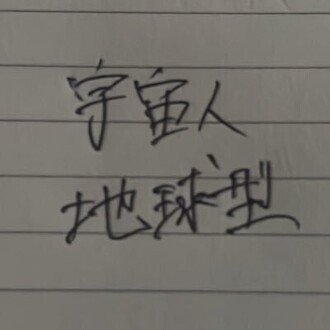 宇宙人
地球型